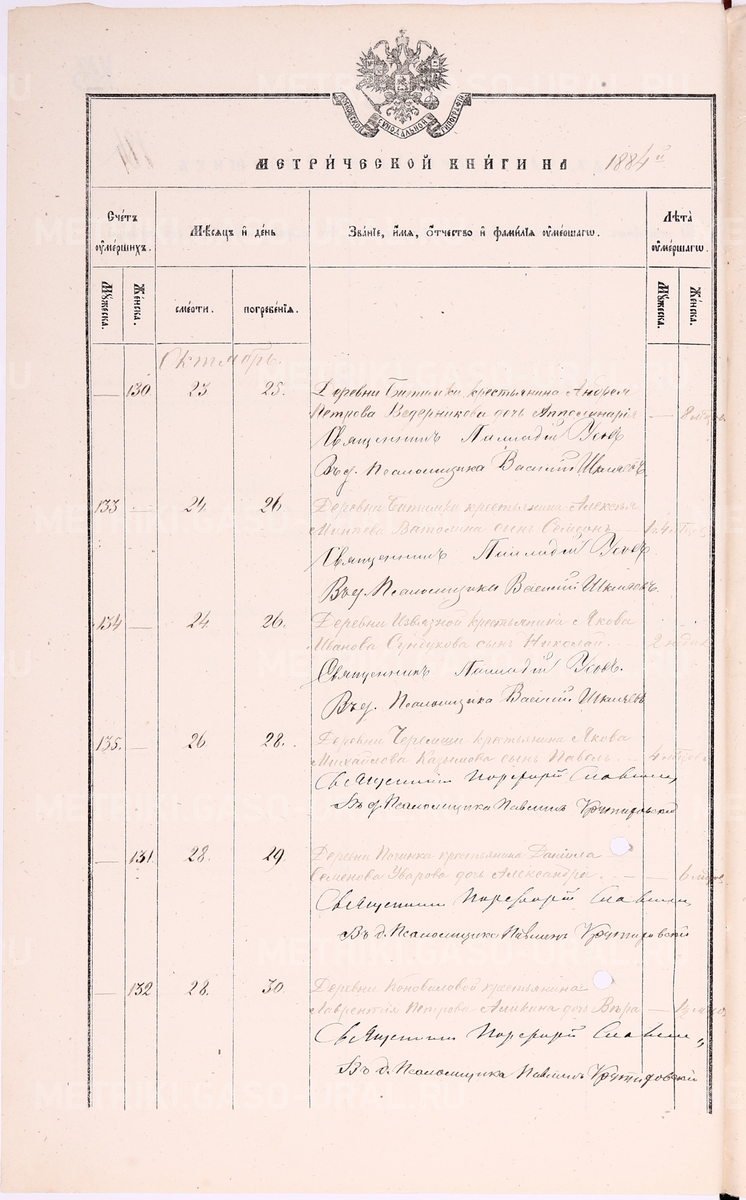 МОСКОВСКОЙ СѴНОДАЛЬНОЙ ТИПОГРАФІИ
МЕТРИ́ЧЕСКОЙ КНИ́ГИ НА 1884й
Счетъ ᲂумершихъ.
Мѣсяцъ и день
Званіе, имя, отчество и фамилія ᲂумершагѡ.
Лѣта ᲂумершагѡ.
Мꙋжеска.
Женска.
смерти.
погребенія.
Мꙋжеска.
Женска.
Октябрь.
— 130 23 25. Деревни Битимки крестьянина Андрея
Петрова Ведерникова дочь Апполинарія — 8 мѣсяц.
Священникъ Палладій Усовъ
Въ д. Псаломщика Василій Шкляевъ
133 — 24. 26. Деревни Битимки крестьянина Алексѣя
Ватолина сынъ Семеонъ
Священникъ Палладій Усовъ
Въ д. Псаломщика Василій Шкляевъ.
134 — 24. 26. Деревни Извязной крестьянина Якова
Иванова Сундукова сынъ Николай 2 недѣль
Священникъ Палладій Усовъ.
Въ д. Псаломщика Василій Шкляевъ
135. — 26. 28. Деревни Черемши крестьянина Якова
Михайлова сынъ Павелъ
Священникъ Порфирій Славнинъ
Въ д. Псаломщика Павлинъ
— 131 28. 29. Деревни Починка крестьянина Даніила
Семенова Уварова дочь Александра. — 6
Священникъ Порфирій Славнинъ
Въ д. Псаломщика Павлинъ
— 132 28. 30. Деревни Коноваловой крестьянина
Лаврентія Петрова Аликина дочь Вѣра
Священникъ Порфирій Славнинъ
Въ д. Псаломщика Павлинъ
METRIKI.GASO-URAL.RU